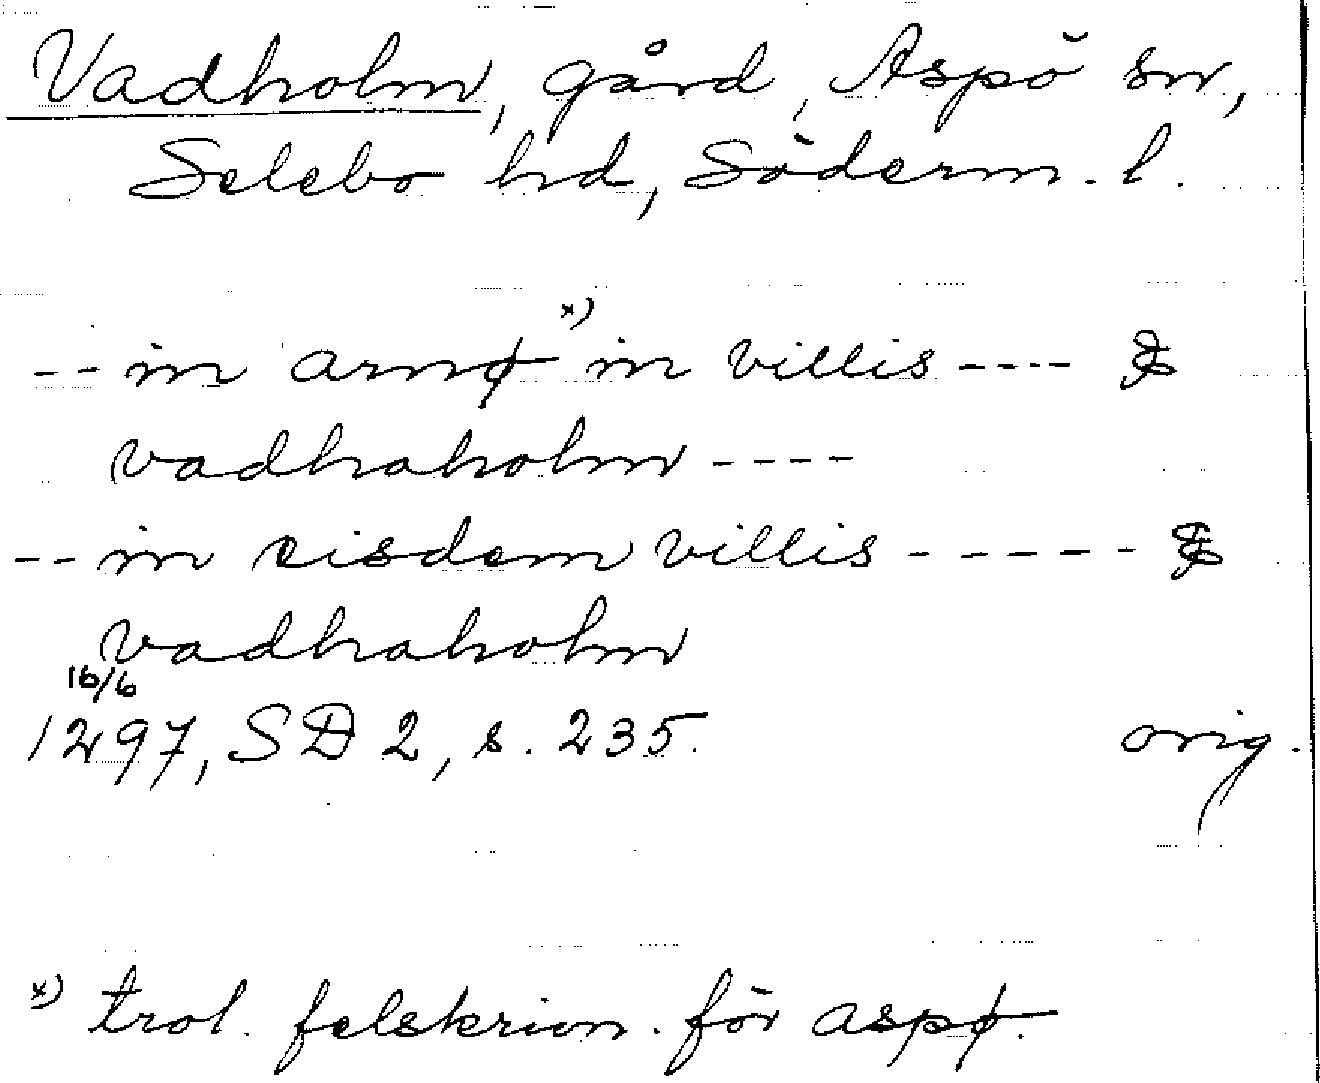 Vadholm, gård, Aspö sn,
Selebo hd, Söderm. l.
-- in arnø x) in villis ---- &
vadhaholm ----
-- in eisdem villis ----- &
vadhaholm
16/6
1297, SD 2, s. 235. orig.
x) trol. felskrivn. för aspø.